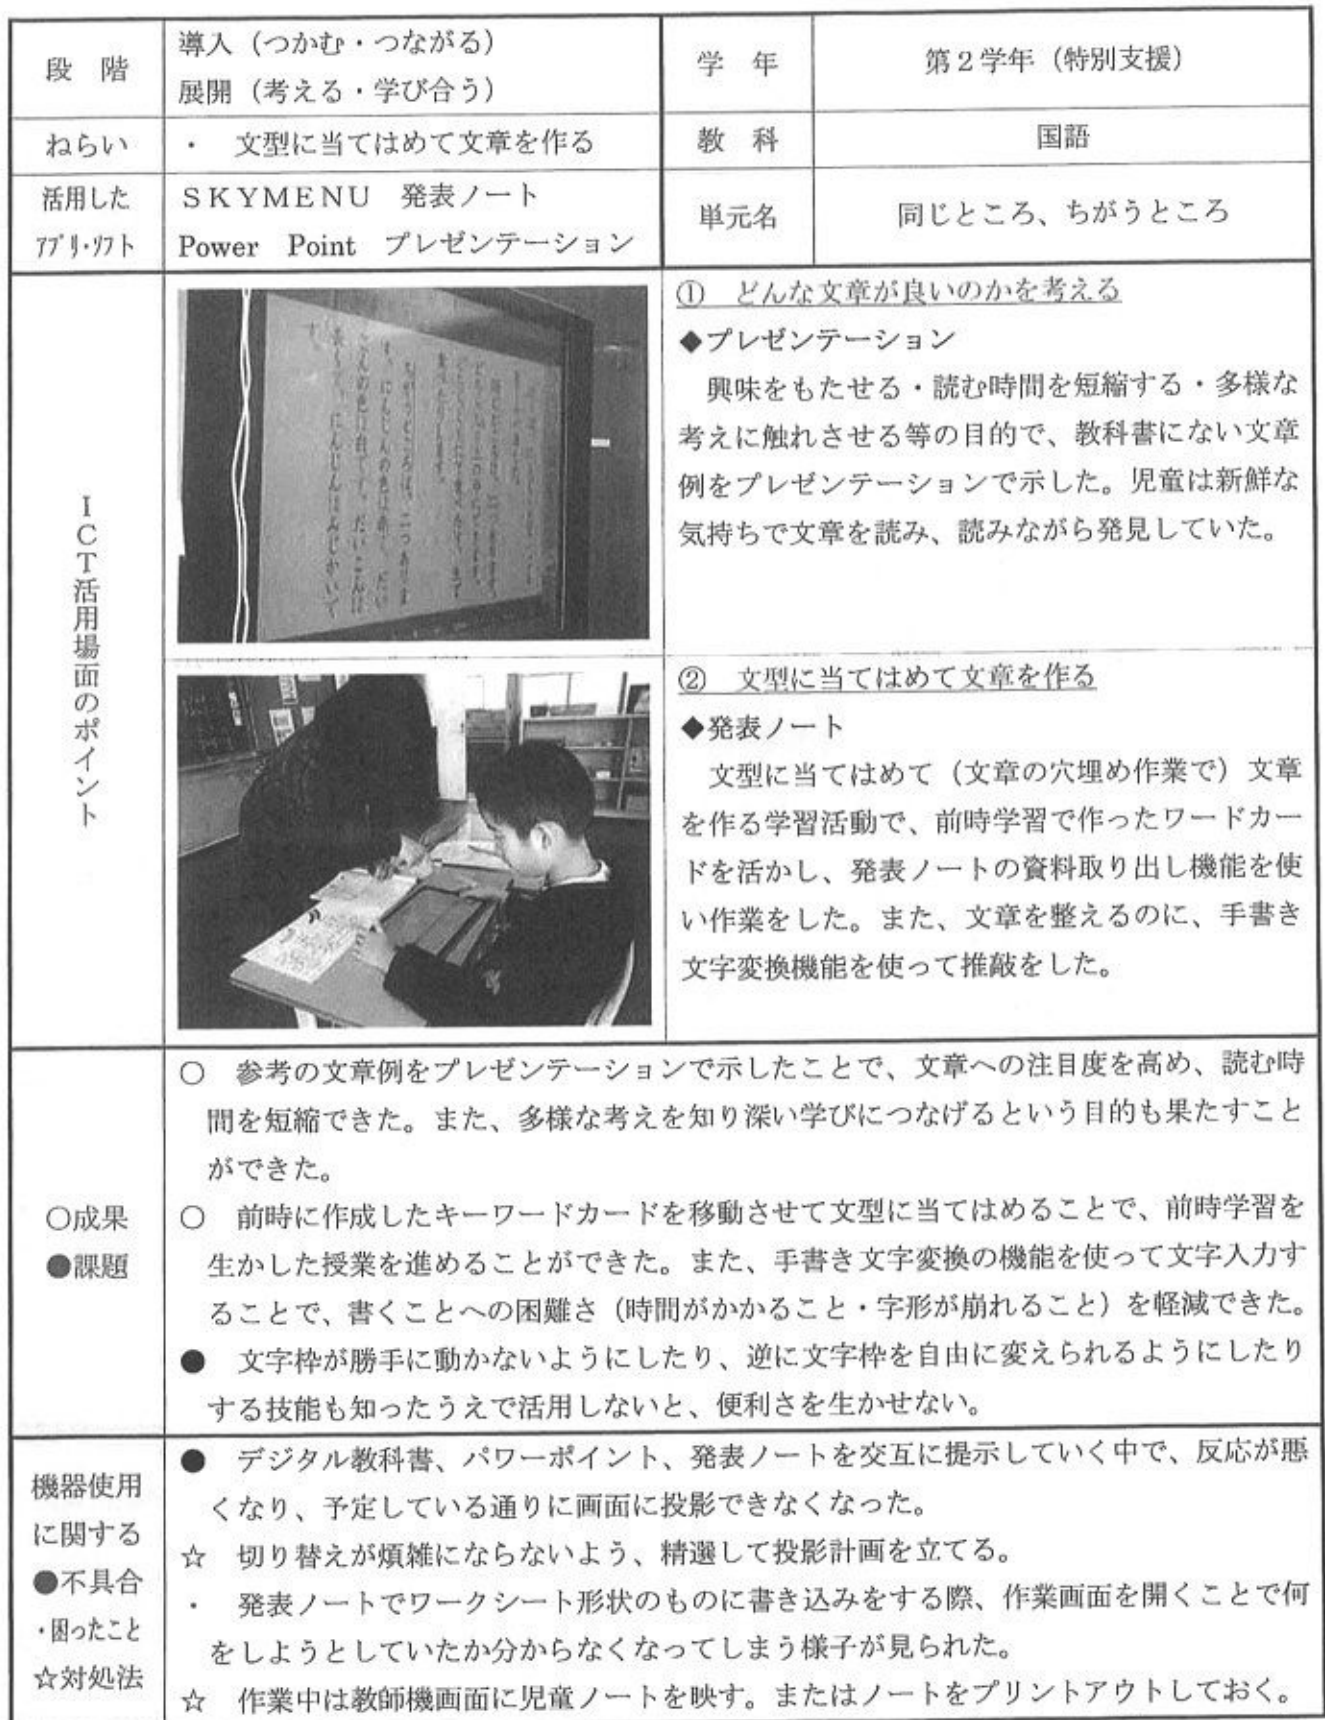 段　階
導入（つかむ・つながる）
展開（考える・学び合う）
学　年
第２学年（特別支援）
ねらい
・　文型に当てはめて文章を作る
教　科
国語
活用した
ｱﾌﾟﾘ・ｿﾌﾄ
ＳＫＹＭＥＮＵ　発表ノート
Power　Point　プレゼンテーション
単元名
同じところ、ちがうところ
ＩＣＴ活用場面のポイント
①　どんな文章が良いのかを考える
◆プレゼンテーション
　興味をもたせる・読む時間を短縮する・多様な
考えに触れさせる等の目的で、教科書にない文章
例をプレゼンテーションで示した。児童は新鮮な
気持ちで文章を読み、読みながら発見していた。
②　文型に当てはめて文章を作る
◆発表ノート
　文型に当てはめて（文章の穴埋め作業で）文章
を作る学習活動で、前時学習で作ったワードカー
ドを活かし、発表ノートの資料取り出し機能を使
い作業をした。また、文章を整えるのに、手書き
文字変換機能を使って推敲をした。
○成果
●課題
○　参考の文章例をプレゼンテーションで示したことで、文章への注目度を高め、読む時
間を短縮できた。また、多様な考えを知り深い学びにつなげるという目的も果たすこと
ができた。
○　前時に作成したキーワードカードを移動させて文型に当てはめることで、前時学習を
生かした授業を進めることができた。また、手書き文字変換の機能を使って文字入力す
ることで、書くことへの困難さ（時間がかかること・字形が崩れること）を軽減できた。
●　文字枠が勝手に動かないようにしたり、逆に文字枠を自由に変えられるようにしたり
する技能も知ったうえで活用しないと、便利さを生かせない。
機器使用
に関する
●不具合
・困ったこと
☆対処法
●　デジタル教科書、パワーポイント、発表ノートを交互に提示していく中で、反応が悪
くなり、予定している通りに画面に投影できなくなった。
☆　切り替えが煩雑にならないよう、精選して投影計画を立てる。
・　発表ノートでワークシート形状のものに書き込みをする際、作業画面を開くことで何
をしようとしていたか分からなくなってしまう様子が見られた。
☆　作業中は教師機画面に児童ノートを映す。またはノートをプリントアウトしておく。